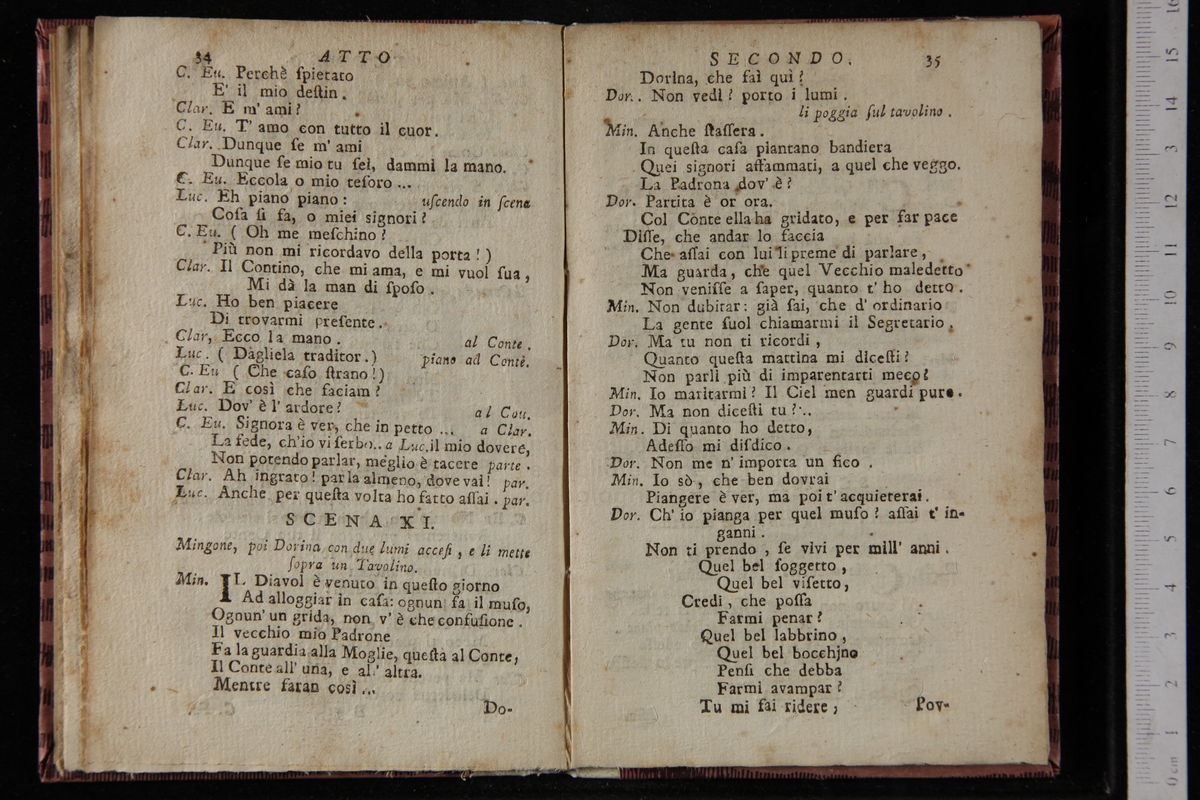 34 ATTO
C. Eu. Perchè ſpietato
E' il mio deſtin.
Clar. E m' ami?
C. Eu. T' amo con tutto il cuor.
Clar. Dunque ſe m' ami
Dunque ſe mio tu ſei, dammi la mano.
C. Eu. Eccola o mio teſoro ...
Luc. Eh piano piano: uſcendo in ſcena
Coſa ſi fa, o miei signori?
C. Eu. ( Oh me meſchino?
Più non mi ricordavo della porta! )
Clar. Il Contino, che mi ama, e mi vuol ſua,
Mi dà la man di ſpoſo.
Luc. Ho ben piacere
Di trovarmi preſente.
Clar, Ecco la mano. al Conte.
Luc. ( Dàgliela traditor. ) piano ad Contè.
C. Eu ( Che caſo ſtrano! )
Clar. E così che faciam?
Luc. Dov' è l' ardore? al Cou.
C. Eu. Signora è ver, che in petto ... a Clar.
La fede, ch'io vi ſerbo.. a Luc. il mio dovere,
Non potendo parlar, meglio è tacere parte.
Clar. Ah ingrato! parla almeno, dove vai! par.
Luc. Anche per queſta volta ho fatto aſſai. par.
SCENA XI.
Mingone, poi Dorina con due lumi acceſi, e li mette
ſopra un Tavolino.
Min. IL Diavol è venuto in queſto giorno
Ad alloggiar in caſa: ognun fa il muſo,
Ognun' un grida, non v' è che confuſione.
Il vecchio mio Padrone
Fa la guardia alla Moglie, queſta al Conte,
Il Conte all' una, e al.' altra.
Mentre faran così ...
Do-
SECONDO. 35
Dorina, che fai qui?
Dor.. Non vedi? porto i lumi.
li poggia ſul tavolino.
Min. Anche ſtaſſera.
In queſta caſa piantano bandiera
Quei signori affammati, a quel che veggo.
La Padrona dov' è?
Dor. Partita è or ora.
Col Conte ella ha gridato, e per far pace
Diſſe, che andar lo faccia
Che aſſai con lui li preme di parlare,
Ma guarda, che quel Vecchio maledetto
Non veniſſe a ſaper, quanto t' ho detto.
Min. Non dubitar: già ſai, che d' ordinario
La gente ſuol chiamarmi il Segretario.
Dor. Ma tu non ti ricordi,
Quanto queſta mattina mi diceſti?
Non parli più di imparentarti meco?
Min. Io maritarmi? Il Ciel men guardi pure.
Dor. Ma non diceſti tu?...
Min. Di quanto ho detto,
Adeſſo mi diſdico.
Dor. Non me n' importa un fico.
Min. Io sò, che ben dovrai
Piangere è ver, ma poi t' acquieterai.
Dor. Ch' io pianga per quel muſo? aſſai t' in-
ganni.
Non ti prendo, ſe vivi per mill' anni.
Quel bel ſoggetto,
Quel bel viſetto,
Credi, che poſſa
Farmi penar?
Quel bel labbrino,
Quel bel bocchjno
Penſi che debba
Farmi avampar?
Tu mi fai ridere;
Pov-